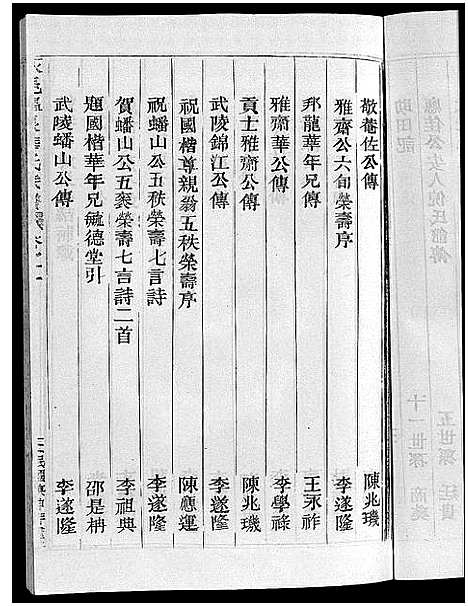 敬菴佐公傳 陳兆璣
雅齋公六旬榮壽序 李遂隆
邦龍華年兄傳 王永祚
雅齋華公傳 李學祿
貢士雅齋公傳 陳兆璣
武陵錦江公傳 李遂隆
祝國楷尊親翁五秩榮壽序 陳應運
祝蟠山公五秩榮壽七言詩 李遂隆
賀蟠山公五袠榮壽七言詩二首 李祖典
題國楷華年兄毓德堂引 邵是枏
武陵蟠山公傳 李遂隆